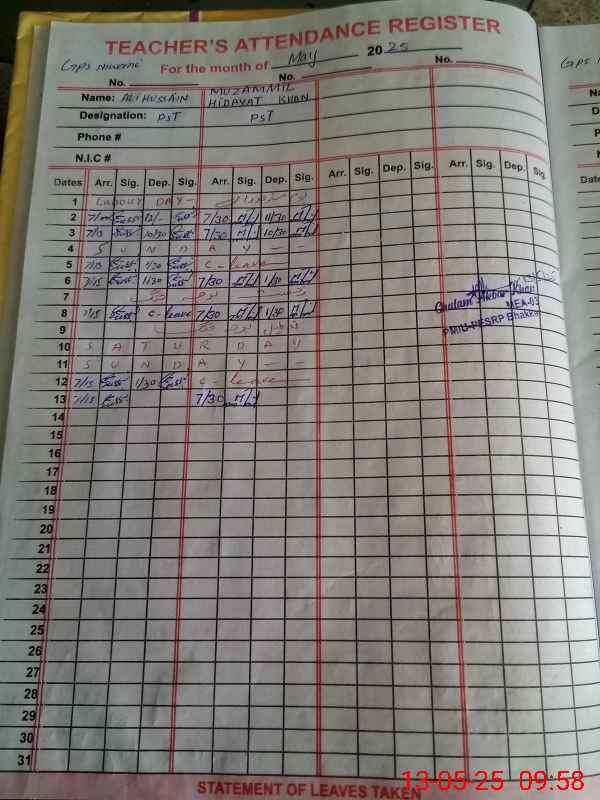 TEACHER'S ATTENDANCE REGISTER
GPS
For the month of May 2025
No. No. No.
Name: ALI HUSSAIN MUZAMMIL HIDAYAT KHAN
Designation: PST PST
Phone #
N.I.C #
Dates Arr. Sig. Dep. Sig. Arr. Sig. Dep. Sig. Arr. Sig. Dep. Sig. Arr. Sig. Dep. Sig.
1 LABOUR DAY
2 12/- 7/30 11/30
3 7/15 10/30 7/30 10/30
4 S U N D A Y
5 7/15 1/30 C-leave
6 7/15 1/30 7/30 1/30
7
8 7/15 C-leave 7/30 1/30
9
10 S A T U R D A Y
11 S U N D A Y
12 7/15 1/30 C-leave
13 7/15 7/30
14
15
16
17
18
19
20
21
22
23
24
25
26
27
28
29
30
31
Ghulam Akbar Khan
MEA-03
PMIU-PESRP Bhakkar
STATEMENT OF LEAVES TAKEN
13-05-25 09:58